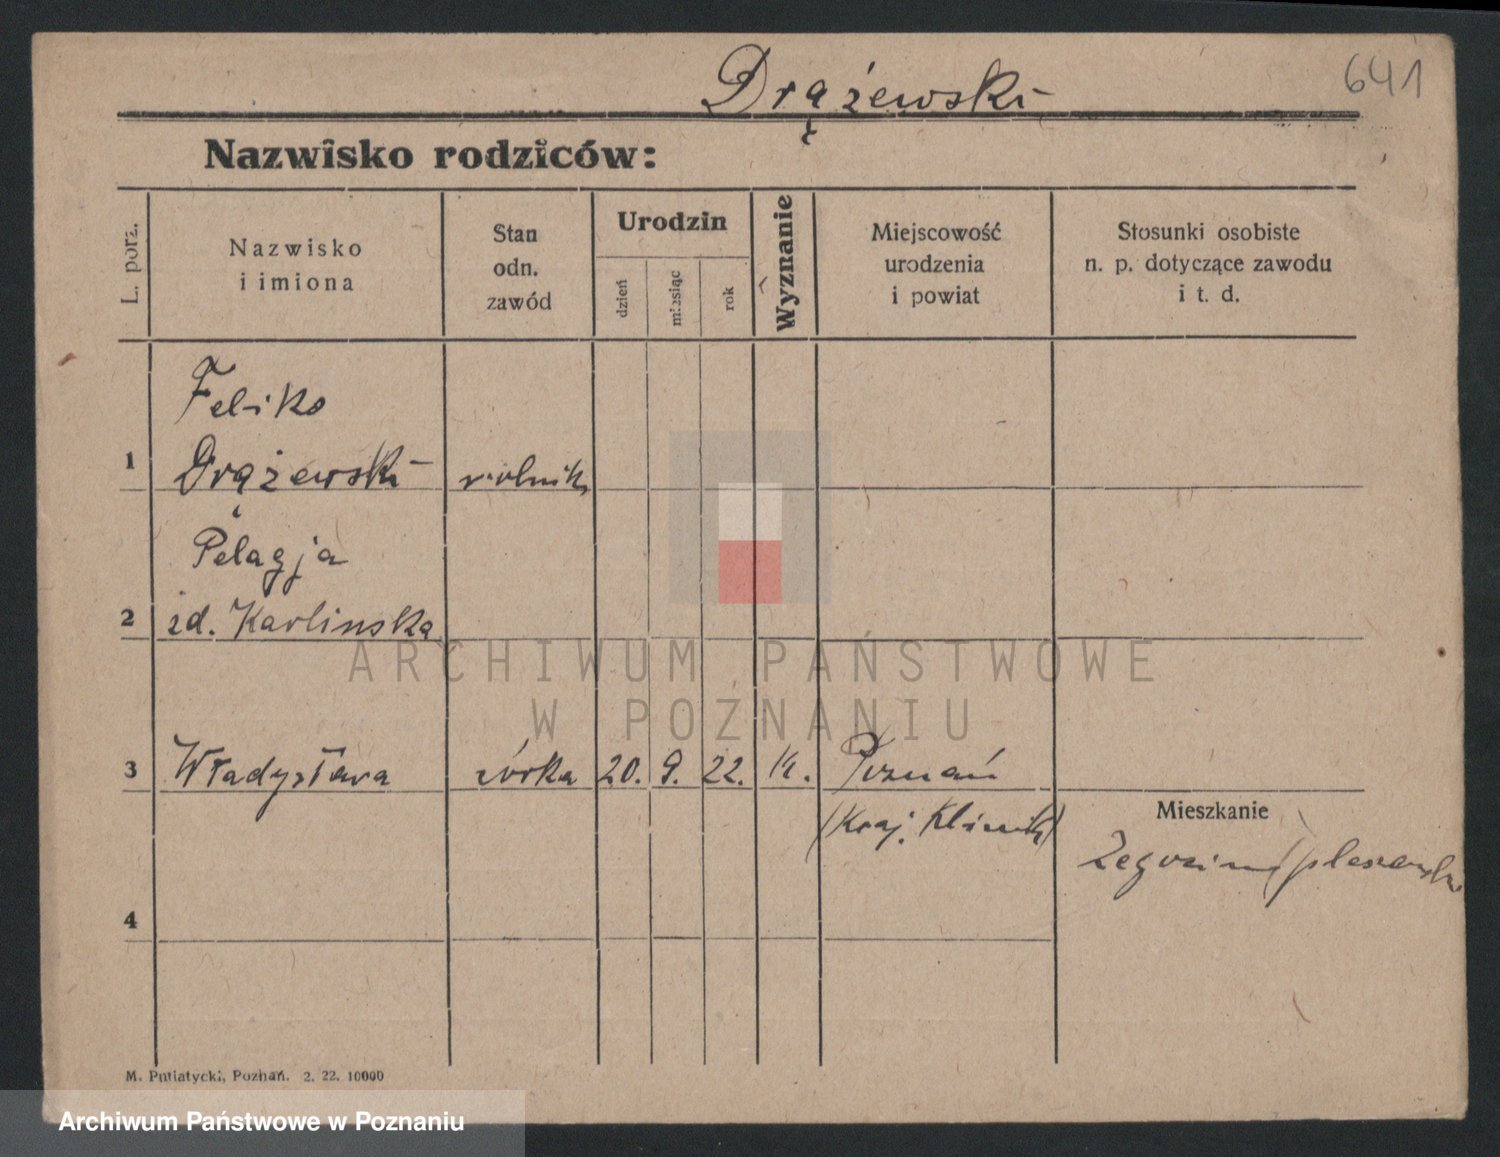 641
Drążewski
Nazwisko rodziców:
L. porz.
Nazwisko
i imiona
Stan
odn.
zawód
Urodzin
dzień
miesiąc
rok
Wyznanie
Miejscowość
urodzenia
i powiat
Stosunki osobiste
n. p. dotyczące zawodu
i t. d.
Feliks
1 Drążewski rolnik
Pelagja
2 zd. Karlinska
ARCHIWUM PAŃSTWOWE
W POZNANIU
3 Władysława córka 20. 9. 22. k. Poznań
(Kraj. Klinik)
Mieszkanie
4
M. Putiatycki, Poznań. 2. 22. 10000
Archiwum Państwowe w Poznaniu